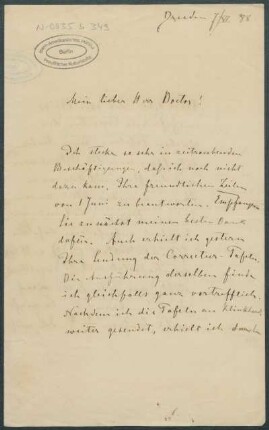 N-0635 b 249
Dresden 7/VI. 88
Mein lieber Herr Doctor!
Ich stecke so sehr in zeitraubenden
Beschäftigungen, daß ich noch nicht
dazu kam, Ihre freundlichen Zeilen
von 1 Juni zu beantworten. Empfangen
Sie zunächst meinen besten Dank
dafür. Auch erhielt ich gestern
Ihre Sendung der Correctur-Tafeln.
Die Ausführung derselben finde
ich gleichfalls ganz vortrefflich.
Nachdem ich die Tafeln an
weiter gesendet, erhielt ich